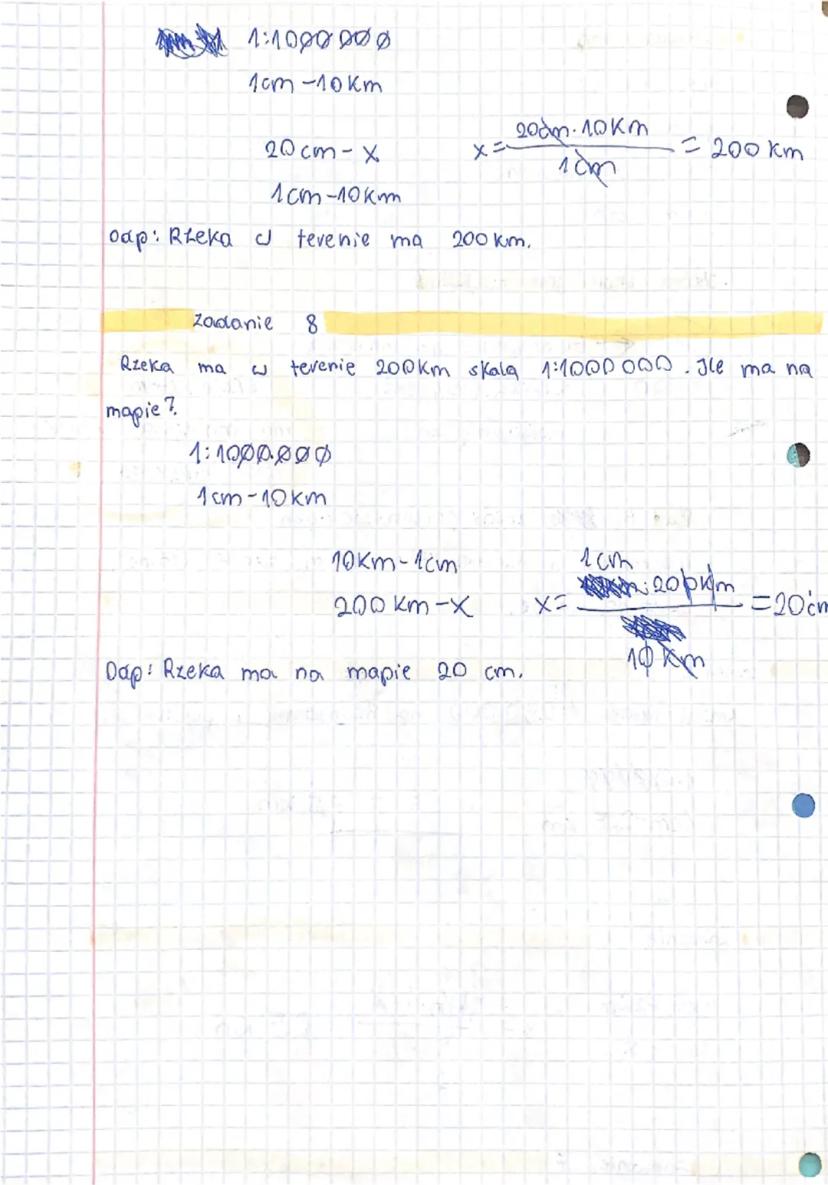 1:1000000
1cm-10km
20cm-x x=20cm·10km/1cm=200km
1cm-10km
Odp: Rzeka w terenie ma 200km.
Zadanie 8
Rzeka ma w terenie 200km skala 1:1000000. Ile ma na
mapie?
1:1000.000
1cm-10km
10km-1cm
200km-x x=1cm·200km/10km=20cm
Odp: Rzeka ma na mapie 20 cm.